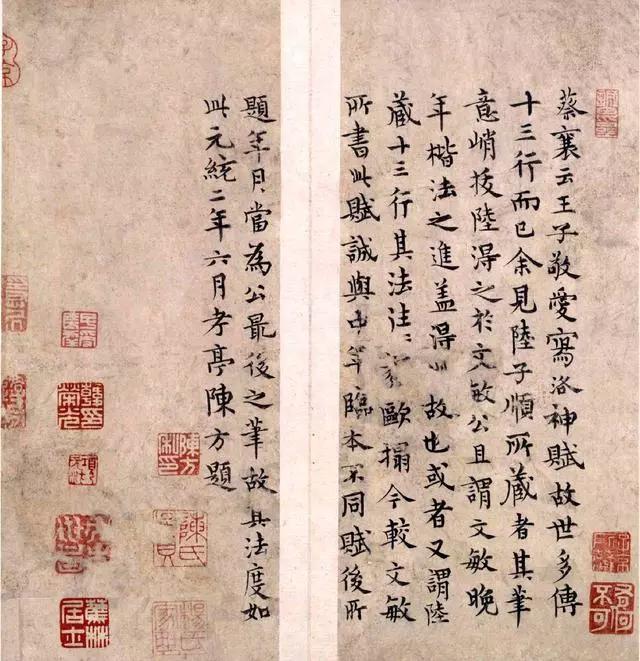 蔡襄云王子敬愛寫洛神賦故世多傳
十三行而已余見陸子順所藏者其筆
意峭拔陸得之於文敏公且謂文敏晚
年楷法之進蓋得此故也或者又謂陸
藏十三行其法往〻 歐搨今較文敏
所書此賦誠與中年臨本不同賦後所
題年月當為公最後之筆故其法度如
此元統二年六月孝亭陳方題
陳方
陳氏